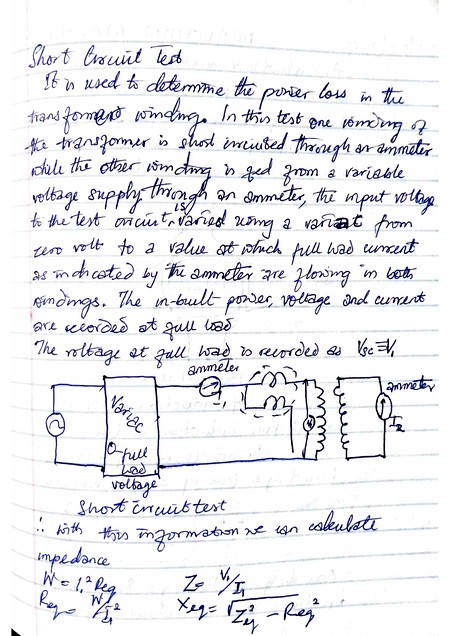 Short Circuit Test
It is used to determine the power loss in the
transformers winding. In this test one winding of
the transformer is short circuited through an ammeter
while the other winding is fed from a variable
voltage supply through an ammeter, the input voltage
to the test circuit is varied using a variat from
zero volt to a value at which full load current
as indicated by the ammeter are flowing in both
windings. The in-built power, voltage and current
are recorded at full load
The voltage at full load is recorded as Vsc = V₁
ammeter
I₁
ammeter
I₂
Variac
0-full
load
voltage
Short circuit test
∴ with this information we can calculate
impedance
W = I₁² Req
Z = V₁/I₁
Req = W/I₁²
Xeq = √Zeq² - Req²